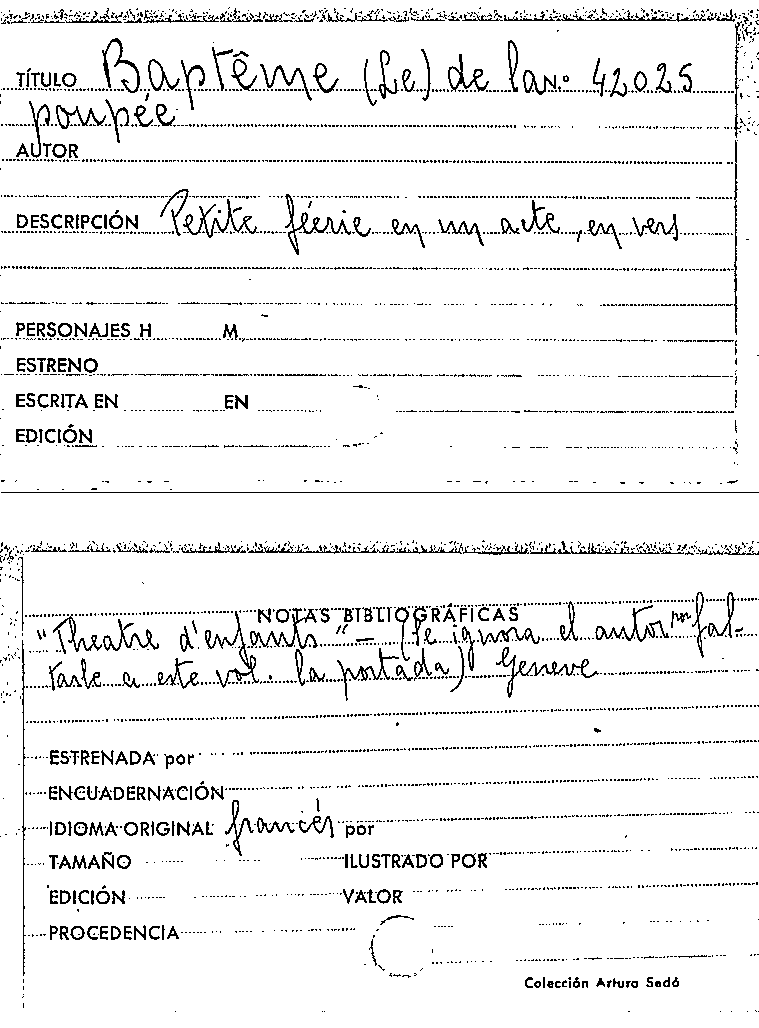 TÍTULO Baptême (Le) de la N.º 42025
poupée
AUTOR
DESCRIPCIÓN Petite féerie en un acte, en vers
PERSONAJES H M
ESTRENO
ESCRITA EN EN
EDICIÓN
NOTAS BIBLIOGRÁFICAS
"Theatre d'enfants" – (Se ignora el autor por fal-
tarle a este vol. la portada) Geneve
ESTRENADA por
ENCUADERNACIÓN
IDIOMA ORIGINAL francés por
TAMAÑO ILUSTRADO POR
EDICIÓN VALOR
PROCEDENCIA
Colección Arturo Sedó